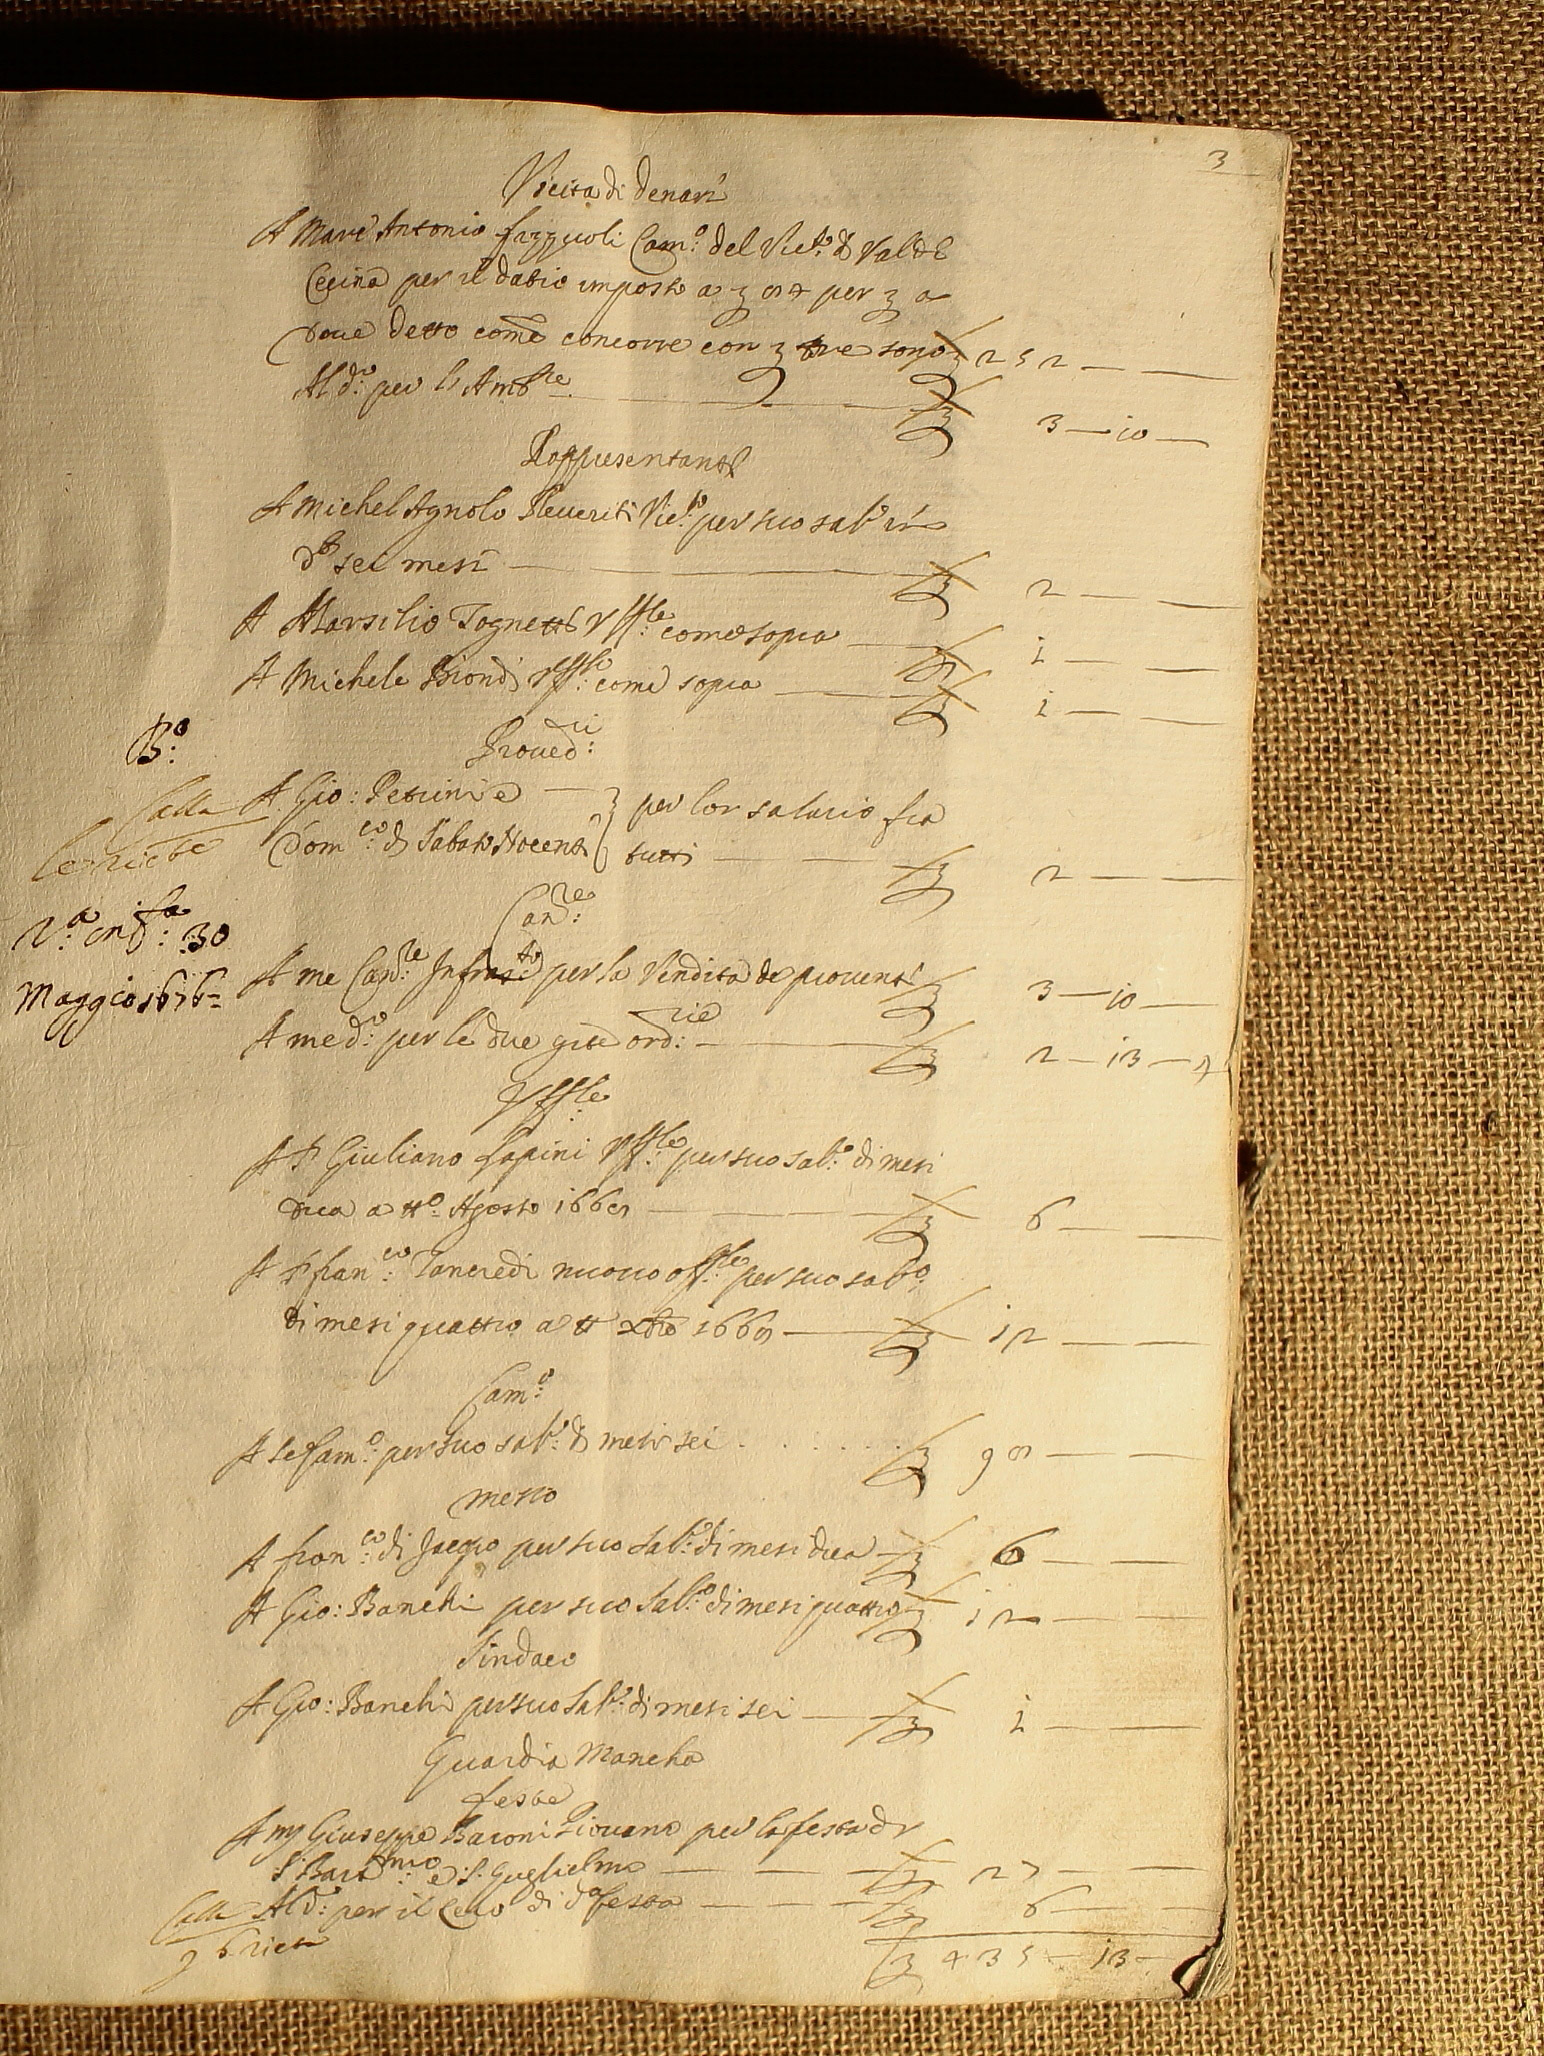 3
Uscita di denari
A Marc Antonio Fazzuoli Cam:º del Vic:to di Val di
Cecina per il datio imposto a per a
detto come concorre con sono 252 — —
Al d:º per l'Amb:re 3 — 10 —
Rappresentanti
A Michel Agnolo Vic:º per suo sal:º in
d:º sei mesi 2 — —
A Marsilio Tognetti Uff:le come sopra 1 — —
A Michele Biondi Uff:le come sopra 1 — —
Proved:ri
Bº:
A Gio: Petrini e } per lor salario fra
Dom:co di Sabato Nocenti } tutti 2 — —
Calla
le riebe
Can:re
V:ª in f:ª 30
Maggio 1676
A me Can:re Infras:to per la Vendita de proventi 3 — 10 —
A me d:º per le due gite ord:rie 2 — 13 — 4
Uff:le
A P Giuliano Papini Uff:le per suo sal:º di mesi
dua a tt:º Agosto 1669 6 — —
A P fran:co Tancredi nuovo off:le per suo sal:º
di mesi quattro a tt xbre 1669 12 — —
Cam:º
A se Cam:º per suo sal:º di mesi sei 98 — —
Messo
A fran:co di Jacopo per suo sal:º di mesi dua 6 — —
A Gio: Banchi per suo sal:º di mesi quattro 12 — —
Sindaco
A Gio: Banchi per suo sal:º di mesi sei 1 — —
Guardia Mancha
feste
A m Giuseppe Baroni Piovano per la festa di
S: Bart:meo e S: Guglielmo 27 — —
Al d:º per il Cero di d:ª festa 6 — —
Calla
435 — 13 —